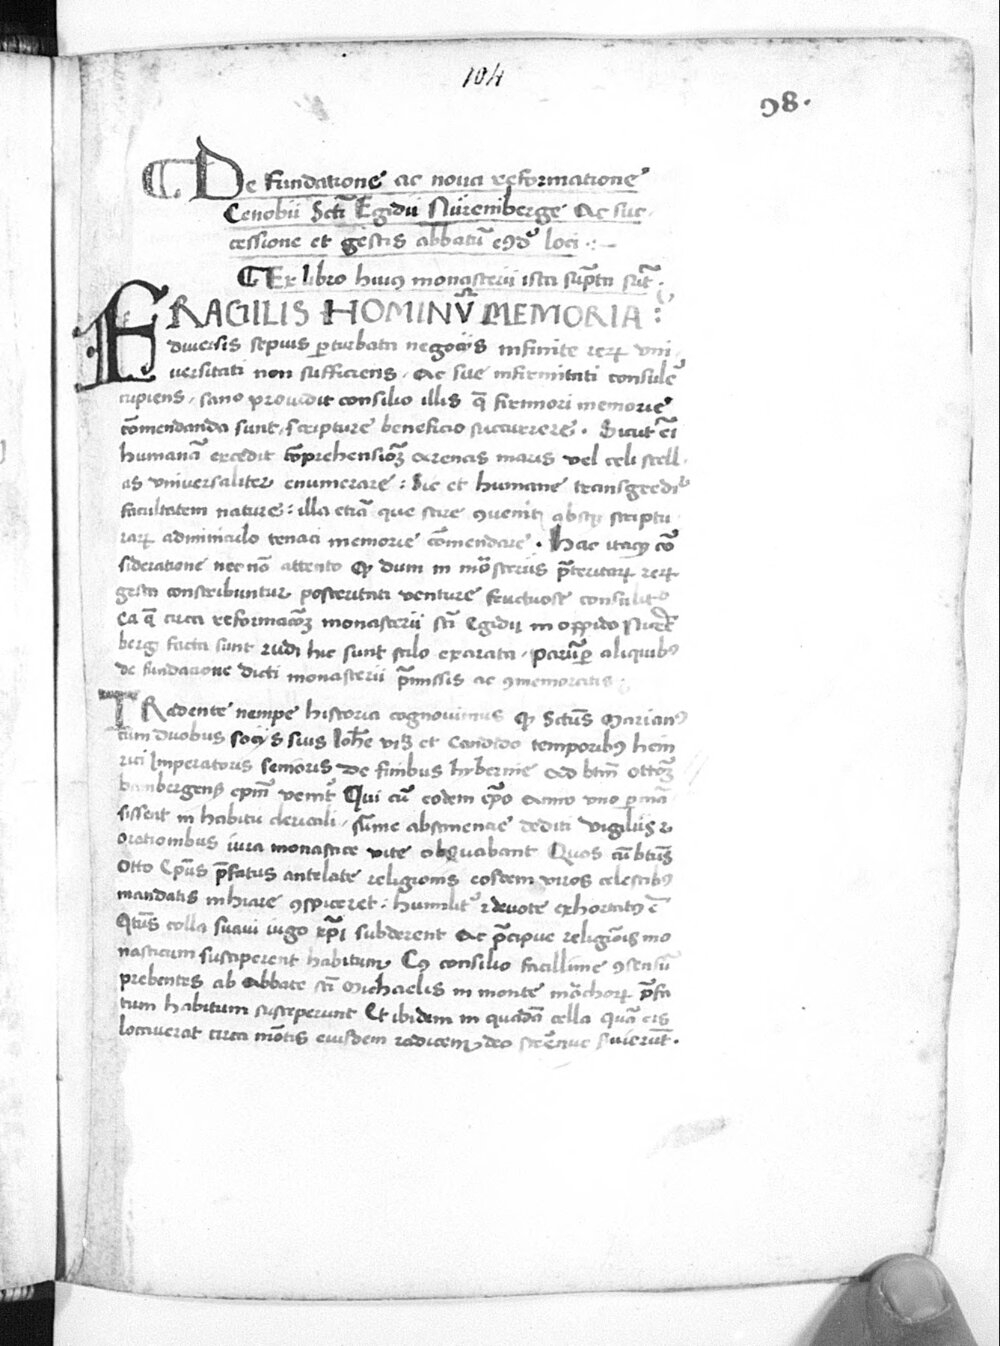 104
98.
De fundatione ac noua reformatione
Cenobii Scti Egidii Nüremberge Ac suc
cessione et gestis abbatū eiusdē loci
Ex libro huiꝰ monasterii ista sūpta sūt.
FRAGILIS HOMINV̄ MEMORIA:
diuersis sepius ꝑturbata negociis infinite reꝝ vni
uersitati non sufficiens. Ac sue infirmitati consulē
cupiens, sano prouidit consilio illis q̄ firmiori memorie
cōmendanda sunt, scripture beneficio succurrere. Sicut eī
humanā excedit cōprehensiōꝫ arenas maris vel celi stell
as vniuersaliter enumerare: Sic et humane transgredit᷑
facultatem nature: illa etiā que scire ꝯuenit absqꝫ scriptu
raꝝ adminiculo tenaci memorie cōmendare. Hac itaqꝫ cō
sideratione nec nō attento ꝙ dum in mōsteriis p̄teritaꝝ reꝝ
gesta conscribuntur posteritati venture fructuose consulit᷑
Ea q̄ circa reformacōꝫ monasterii scī Egidij in oppido Nurē
berg facta sunt rudi hic sunt stilo exarata, parūꝑ aliquibꝰ
de fundacione dicti monasterii p̄missis ac ꝯmemoratis:
TRadente nempe historia cognouimus ꝙ Sctūs Marianꝰ
cum duobus socijs suis Ioh̄e vꝫ et Candido temporibꝰ hein
rici Imperatoris senioris De finibus hybernie Ad btm̄ ottoēꝫ
bambergens̄ epm̄ venit᷑ Qui cū eodem ep̄o Anno vno ꝑmā
sissent in habitu clericali, sūme abstinencie dediti vigiliis ⁊
orationibus iura monastice vite obseruabant Quos cū btūs
Otto Ep̄us p̄fatus antelate religionis eosdem viros celestibꝰ
mandatis inhiare ꝯspiceret: humilit᷑ ⁊ deuote exhortatꝰ ē
Qtūs colla suaui iugo xp̄i subderent Ac p̄cipue religiōis mo
nasticum susciperent habitum, Cꝰ consilio facillime ꝯsensū
prebentes ab Abbate scī Michaelis in monte mōchoꝝ p̄fa
tum habitum susceperunt Et ibidem in quadā cella quā eis
locauerat circa mōtis eiusdem radicem, deo strēnue seruierūt.